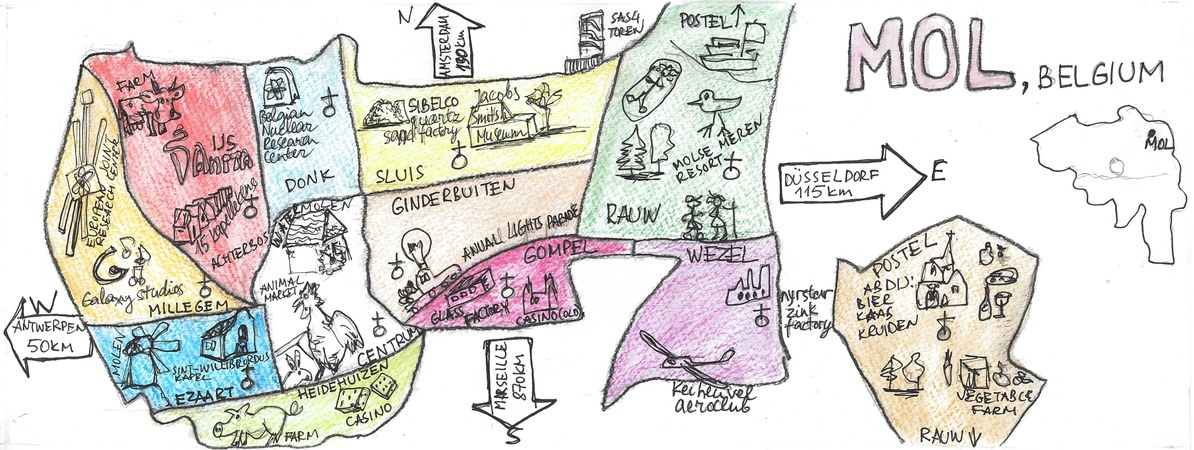 MOL, BELGIUM
N
AMSTERDAM
130 km
SAS4
TOREN
POSTEL
FARM
IJS
DANITA
15 kapellekens
ACHTERBOS
Belgian
Nuclear
Research
Center
DONK
SIBELCO
quartz
sand factory
Jacob
Smits
Museum
SLUIS
MOLSE MEREN
RESORT
RAUW
DÜSSELDORF
115 km
E
MOL
EUROPEAN JOINT
RESEARCH CENTER
Galaxy Studios
MILLEGEM
WATERMOLEN
ANIMAL
MARKET
CENTRUM
GINDERBUITEN
ANUALL LIGHTS PARADE
GOMPEL
GLASS
FACTORY
CASINO (OLD)
WEZEL
nyrstar
zink
factory
Keiheuvel
aeroclub
W
ANTWERPEN
50KM
MOLEN
SINT-WILLIBRORDUS
KAPEL
EZAART
HEIDEHUIZEN
CASINO
FARM
MARSELLE
870KM
S
POSTEL
ABDIJ:
BIER
KAAS
KRUIDEN
VEGETABLE
FARM
RAUW